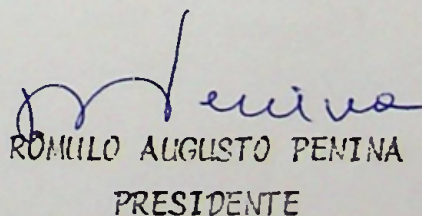 Penina
ROMULO AUGUSTO PENINA
PRESIDENTE